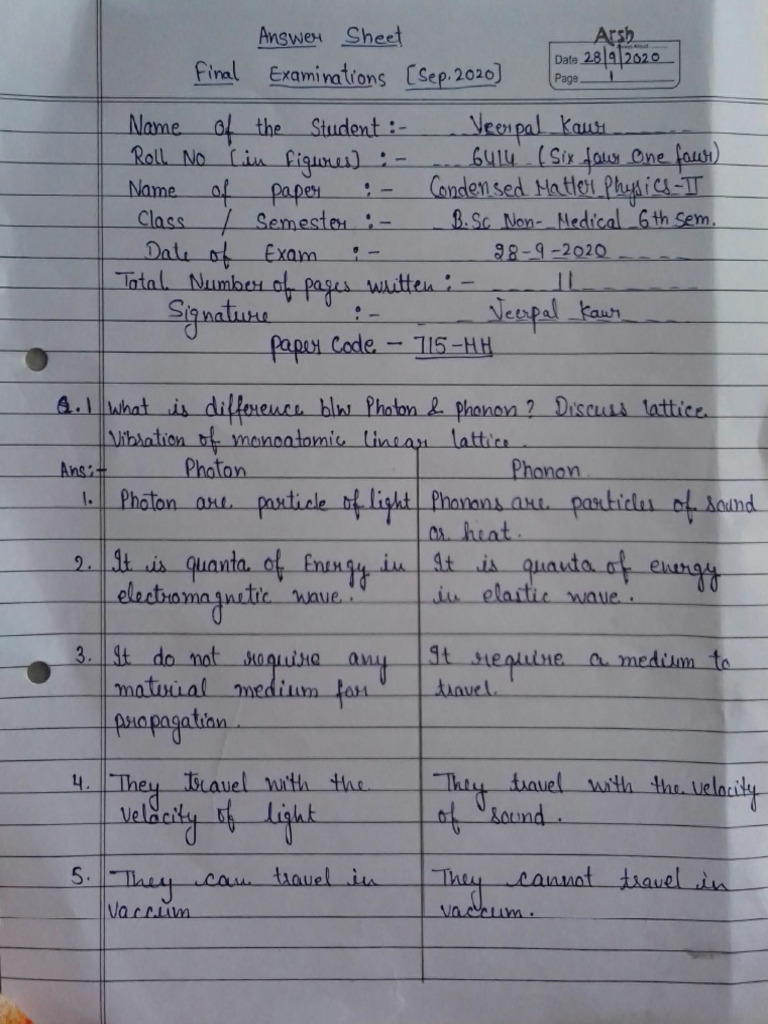 Answer Sheet
Arsh
Final Examinations [Sep.2020]
Date 28/9/2020
Page 1
Name of the Student :- Veerpal Kaur
Roll No [in figures] :- 6414 (Six four One four)
Name of paper :- Condensed Matter Physics-II
Class / Semester :- B.Sc Non-Medical 6th Sem.
Date of Exam :- 28-9-2020
Total Number of pages written :- 11
Signature :- Veerpal Kaur
Paper Code - 715-HH
Q.1 What is difference b/w Photon & phonon? Discuss lattice
Vibration of monoatomic linear lattice.
Ans:- Photon Phonon
1. Photon are particle of light Phonons are particles of sound
or heat.
2. It is quanta of Energy in It is quanta of energy
electromagnetic wave. in elastic wave.
3. It do not require any It require a medium to
material medium for travel.
propagation.
4. They travel with the They travel with the velocity
velocity of light of sound.
5. They can travel in They cannot travel in
vaccum vaccum.